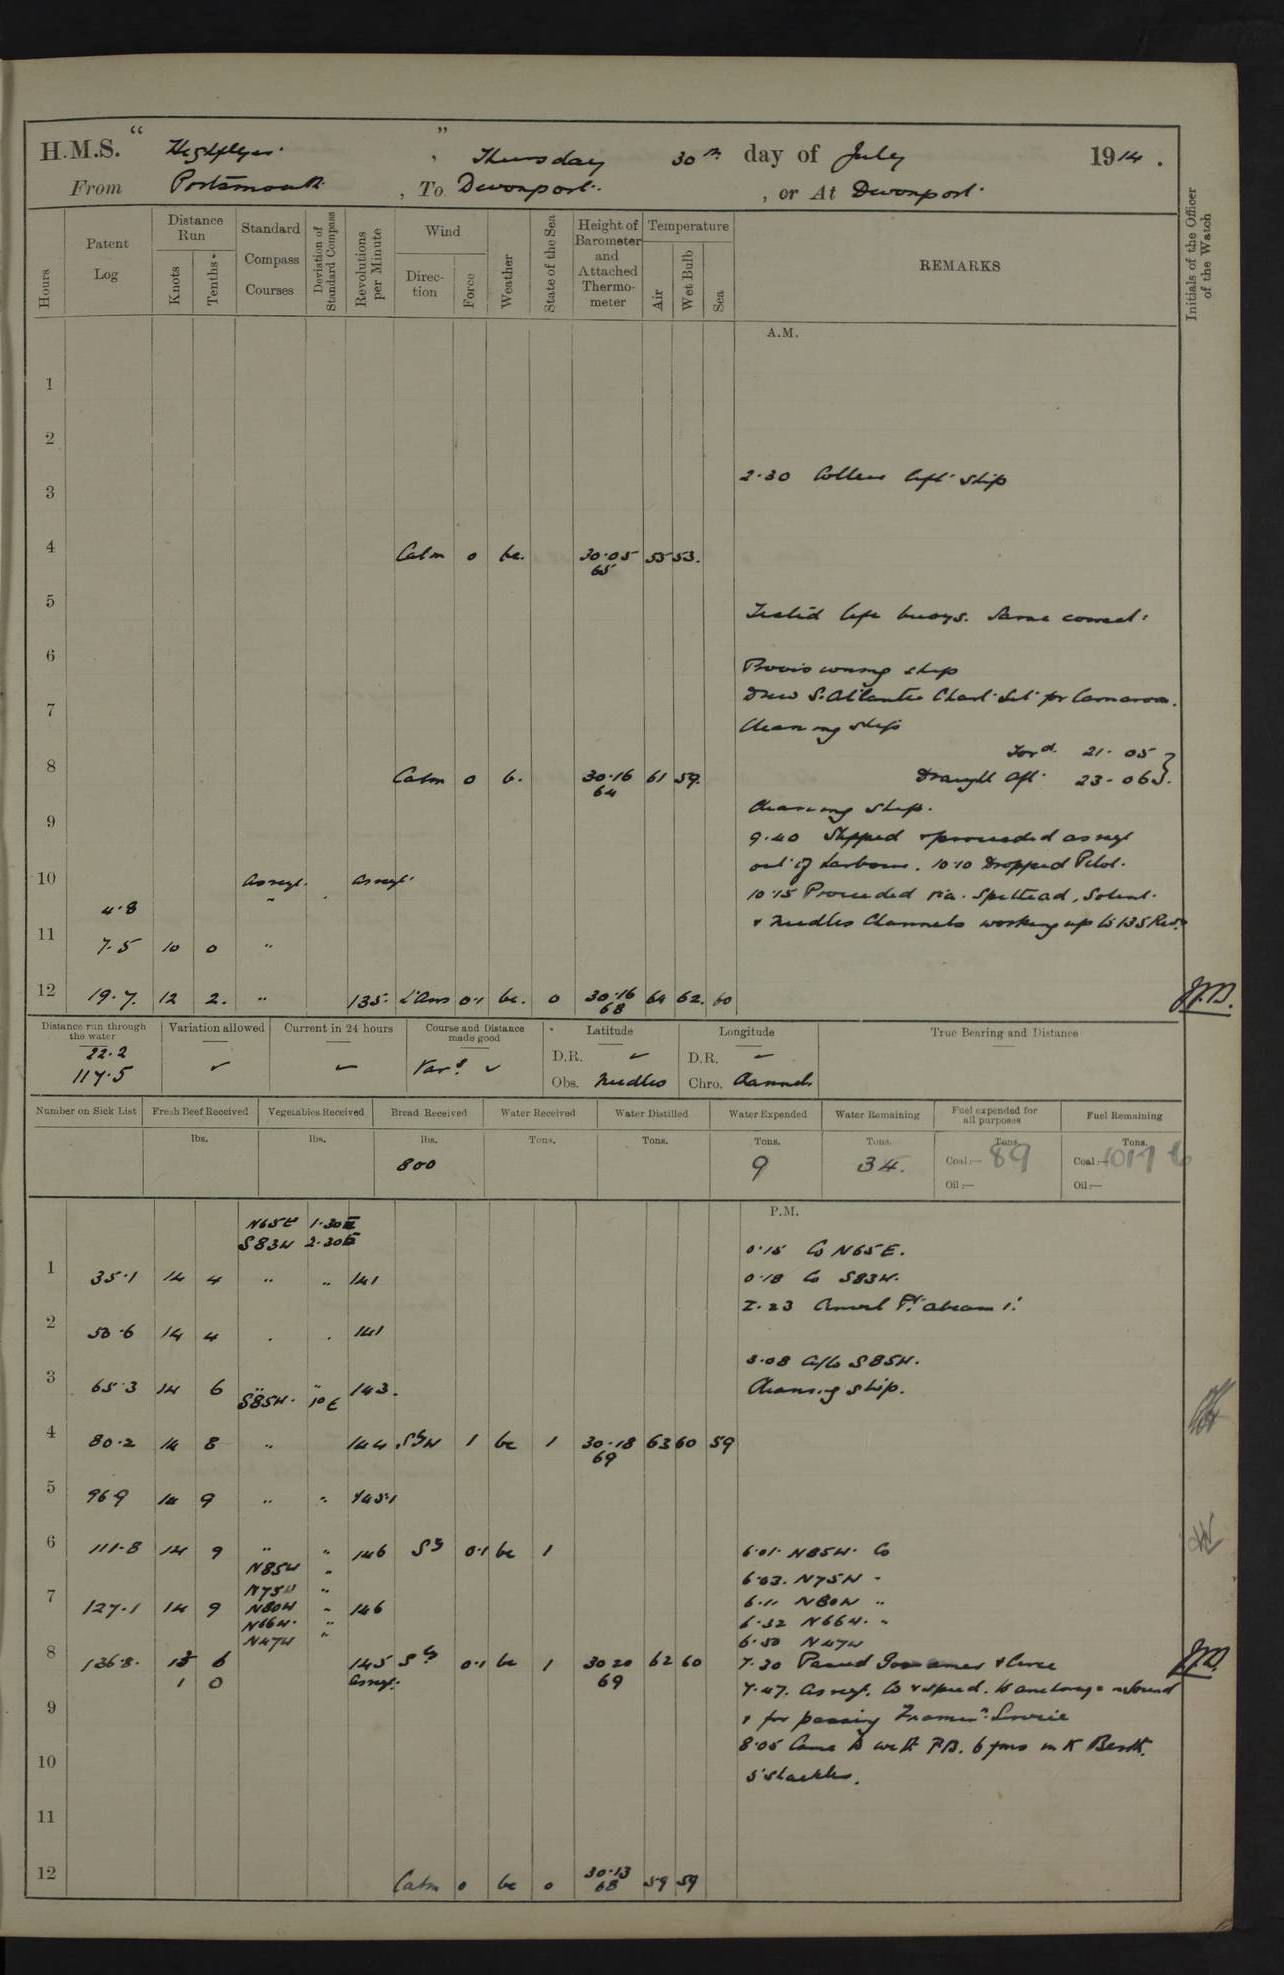 H.M.S. “ Highflyer. ” , Thursday 30th day of July 1914.
From Portsmouth , To Devonport. , or At Devonport.
Hours
Patent Log
Distance Run
Knots
Tenths
Standard Compass Courses
Deviation of Standard Compass
Revolutions per Minute
Wind
Direction
Force
Weather
State of the Sea
Height of Barometer and Attached Thermometer
Temperature
Air
Wet Bulb
Sea
REMARKS
Initials of the Officer of the Watch
A.M.
1
2
2.30 Colliers left ship
3
4 Calm 0 bc. 30.05 55 53.
65
5
Tested life buoys. Same correct.
6
Provisioning ship
Drew S. Atlantic Chart Set for
7
Cleaning ship
Ford. 21. 05
8 Calm 0 b. 30.16 61 59.
64
Draught Aft. 23-06½
Cleaning Ship.
9
9.40 Slipped & proceeded as reqd
out of harbour. 10.10 Dropped Pilot.
10 As reqd. As reqd.
10.15 Proceeded via. Spithead, Solent.
4.8 "
& Needles Channels working up to 135 Revs.
11 7.5 10 0 "
12 19.7. 12 2. " 135. L'Airs 0.1 bc. 0 30.16 64 62. 60
68
Distance run through the water
22.2
117.5
Variation allowed
Current in 24 hours
Course and Distance made good
Var.s
Latitude
D.R.
Obs. Needles
Longitude
D.R.
Chro. Channels
True Bearing and Distance
Number on Sick List
Fresh Beef Received
lbs.
Vegetables Received
lbs.
Bread Received
lbs.
800
Water Received
Tons.
Water Distilled
Tons.
Water Expended
Tons.
9
Water Remaining
Tons.
34.
Fuel expended for all purposes
Tons.
Coal:— 89
Oil:—
Fuel Remaining
Tons.
Coal:—
Oil:—
P.M.
N65E 1.30E
S83W 2.30E
0.15 Co N65E.
1 35.1 14 4 " " 141
0.18 Co S83W.
2.23 Anvil Pt. abeam 1'.
2 50.6 14 4 . . 141
3.08 A/Co S85W.
3 65.3 14 6 " " 143.
S85W. 1°E
Cleaning Ship.
4 80.2 14 8 " 144 SbyW 1 bc 1 30.18 63 60 59
69
5 96.9 14 9 " " 145.1
6 111.8 14 9 " " 146 0.1 bc 1
6.01. N85W. Co
N85W "
6.03. N75W "
N75W "
7 127.1 14 9 N80W " 146
6.11 N80W "
N66W. "
6.32 N66W. "
N47W "
6.50 N47W
8 136.8. 13 6 145 0.1 bc 1 30 20 62 60
1 0 As reqd. 69
7.30 Passed & Circe
7.47. As reqd. Co & speed. to anchorage in Sound
9
& for passing
8.05 Came to with P.B. 6 fms in K Berth.
10
5 shackles.
11
12 Calm 0 bc 0 30.13 59 59
68